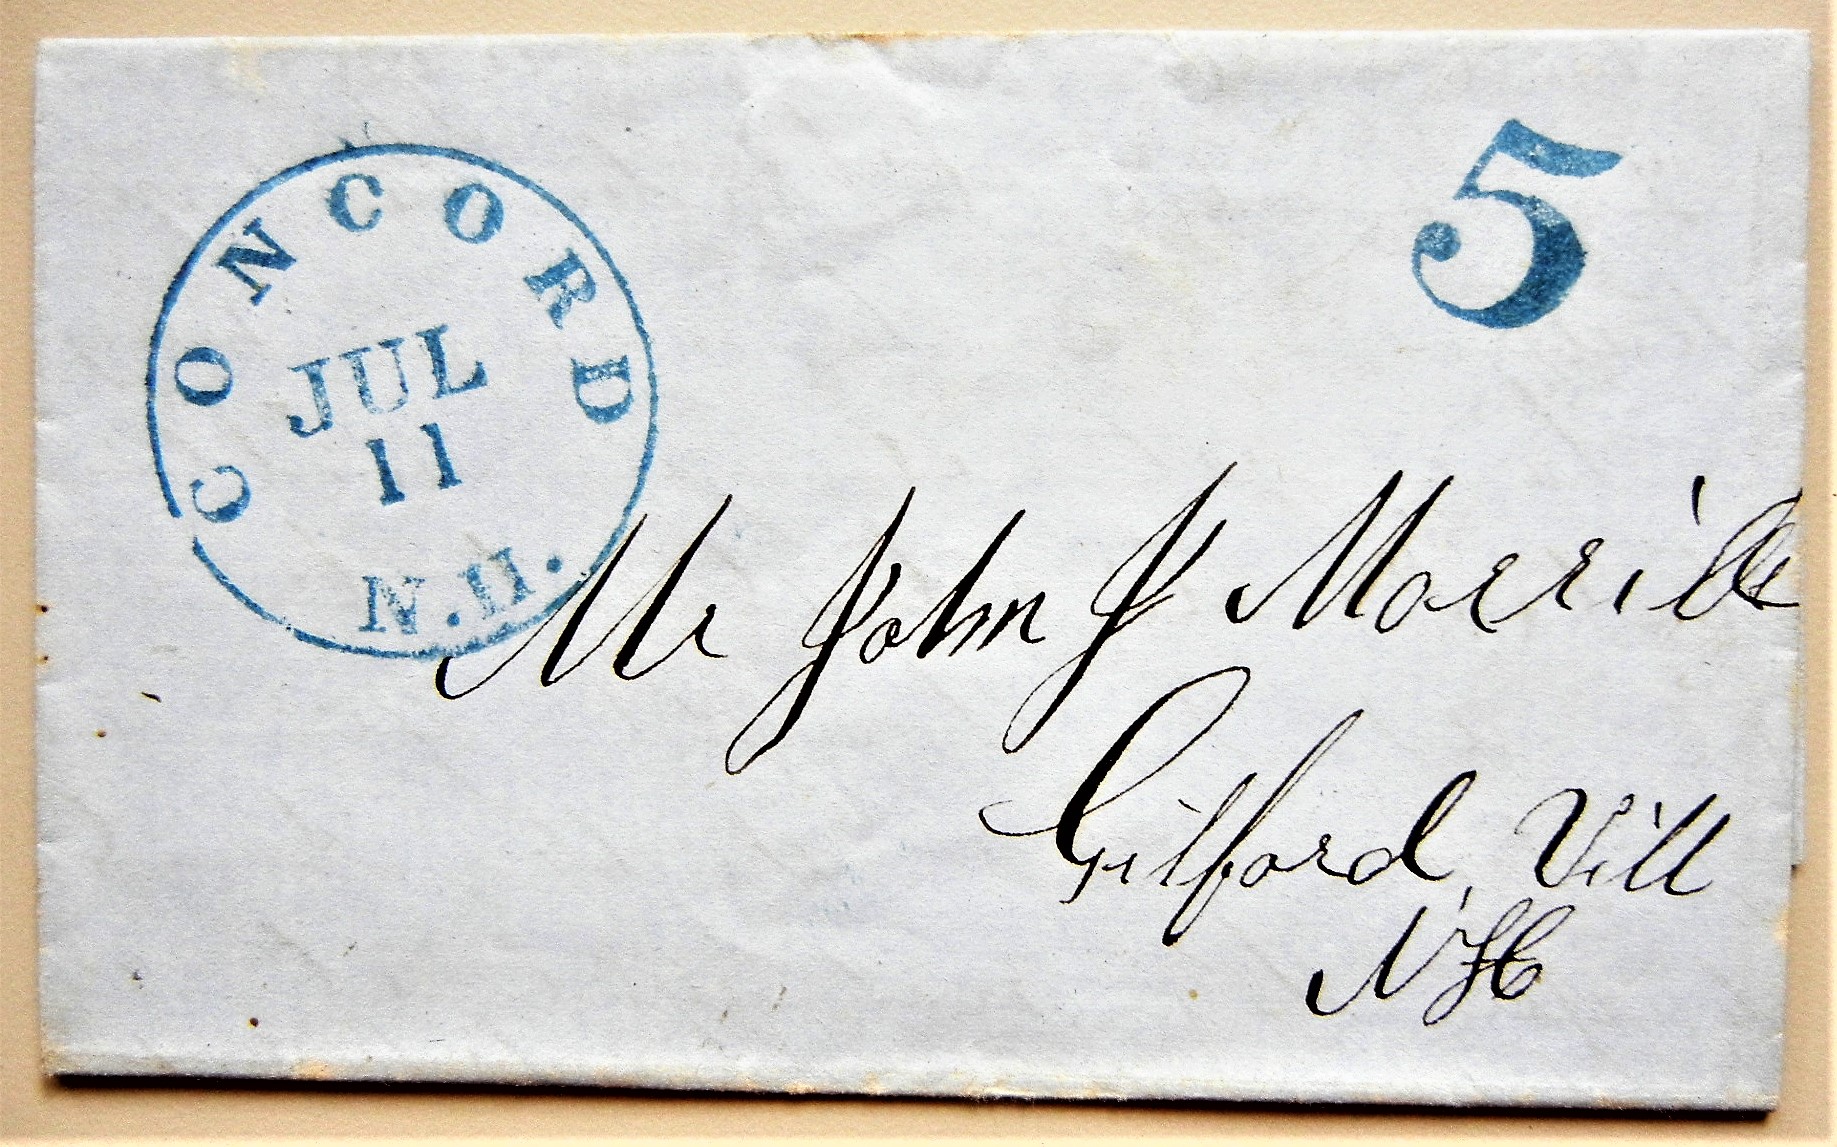 CONCORD
JUL
11
N.H.
5
Mr John J Morrill
Gilford Vill
NH